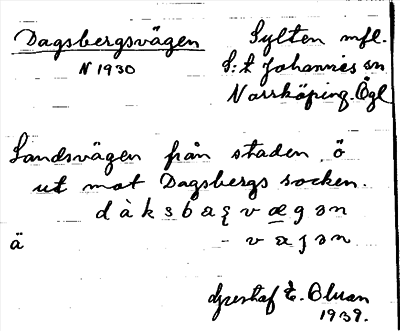 Dagsbergsvägen Sylten mfl.
N 1930 S:t Johannes sn
Norrköping. Ögl
Landsvägen från staden ö
ut mot Dagsbergs socken.
d à k s b a ʒ v æ g ə n
ä - v æ ȷ ə n
Gustaf E. Olsson
1939.